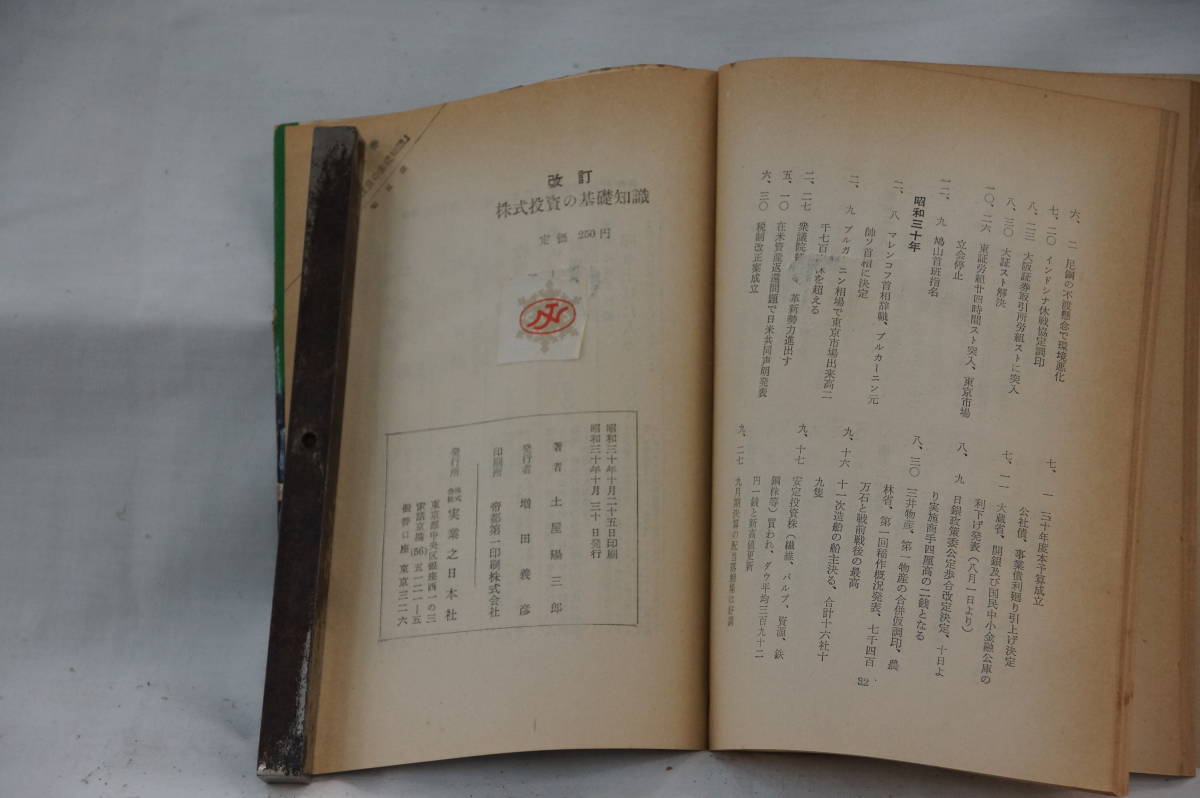 六、二 尼鋼の不渡懸念で環境悪化
七、二〇 インドシナ休戦協定調印
八、二三 大阪証券取引所労組ストに突入
八、三〇 大証スト解決
一〇、二六 東証労組廿四時間スト突入、東京市場
立会停止
一二、九 鳩山首班指名
昭和三十年
二、八 マレンコフ首相辞職、ブルカーニン元
帥ソ首相に決定
二、九 ブルガーニン相場で東京市場出来高二
千七百 株を超える
二、二七 衆議院 革新勢力進出す
五、一〇 在米資産返還問題で日米共同声明発表
六、三〇 税制改正案成立
七、一 三十年度本予算成立
公社債、事業債利廻り引上げ決定
七、一一 大蔵省、開銀及び国民中小金融公庫の
利下げ発表(八月一日より)
八、九 日銀政策委公定歩合改定決定、十日よ
り実施商手四厘高の二銭となる
八、三〇 三井物産、第一物産の合併仮調印、農
林省、第一回稲作概況発表、七千四百
万石と戦前戦後の最高
九、一六 十一次造船の船主決る、合計十六社十
九隻
九、十七 安定投資株(繊維、パルプ、資源、鉄
鋼株等)買われ、ダウ平均三百九十二
円一銭と新高値更新
九、二七 九月期決算の配当落相場は好調
32
改訂
株式投資の基礎知識
定価 250円
昭和三十年十月二十五日印刷
昭和三十年十月三十日発行
著者 土屋陽三郎
発行者 増田義彦
印刷所 帝都第一印刷株式会社
発行所 株式会社 実業之日本社
東京都中央区銀座西一の三
電話京橋(56)五一二一―五
振替口座 東京三二六